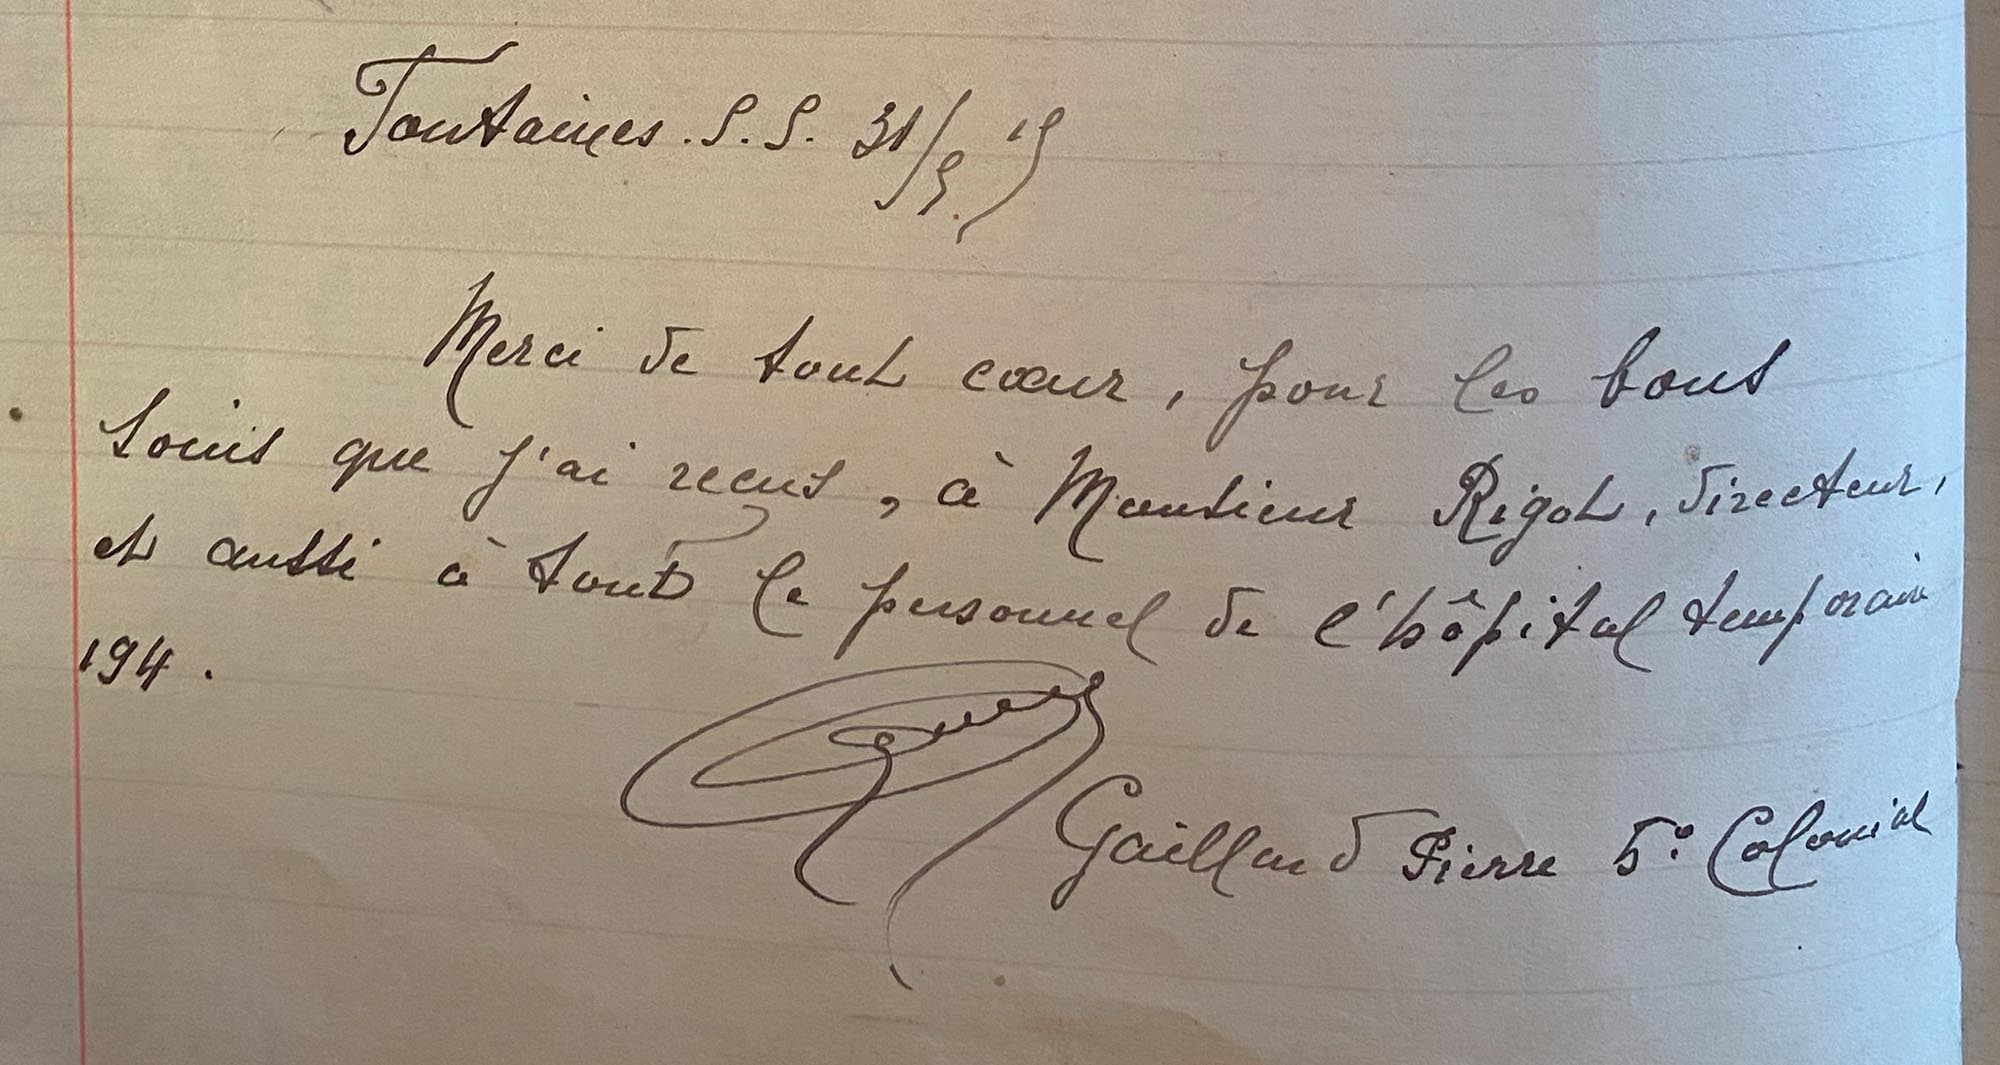 Fontaines. S. S. 31/5. 15
Merci de tout cœur, pour les bons
soins que j'ai recus, à Monsieur Rigot, directeur,
et aussi à tout le personnel de l'hôpital temporaire
194.
Gaillard Pierre 5e Colonial